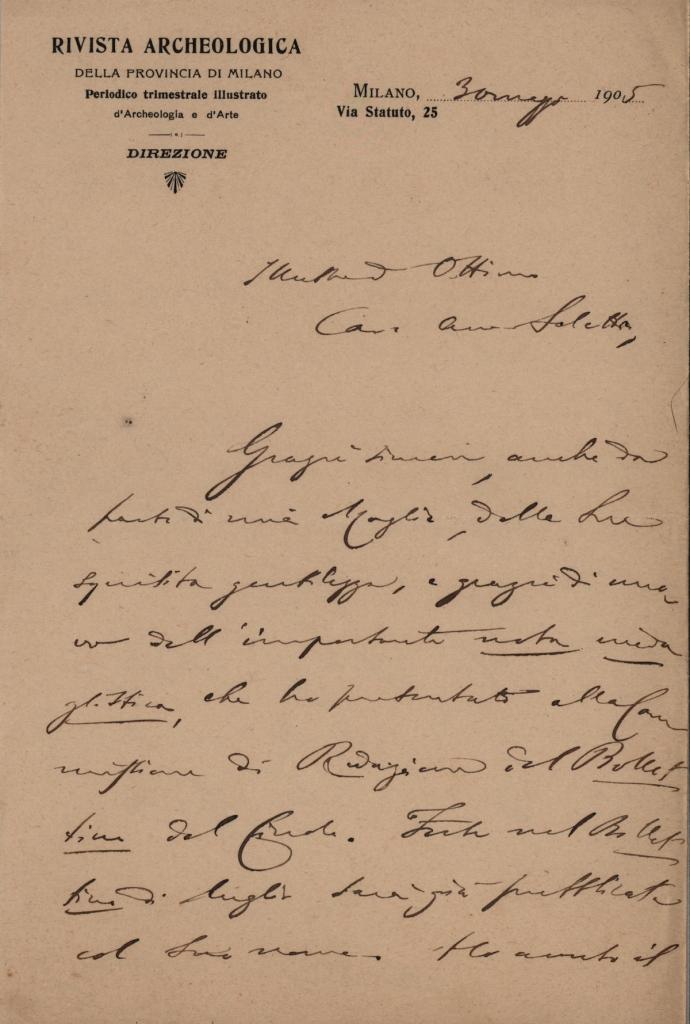 RIVISTA ARCHEOLOGICA
DELLA PROVINCIA DI MILANO
Periodico trimestrale illustrato
d'Archeologia e d'Arte
DIREZIONE
MILANO, 30 1905
Via Statuto, 25
Ottimo
Caro Seletti,
Grazie sincere, anche da
parte di mia Moglie, della Sua
squisita gentilezza, e grazie di nuo
vo dell'importante nota meda
glistica, che ha presentato alla Com
missione di Redazione del Bollet
tino del Circolo. Forse nel Bollet
tino di luglio sarà già pubblicata
col Suo nome. Ho avuto il